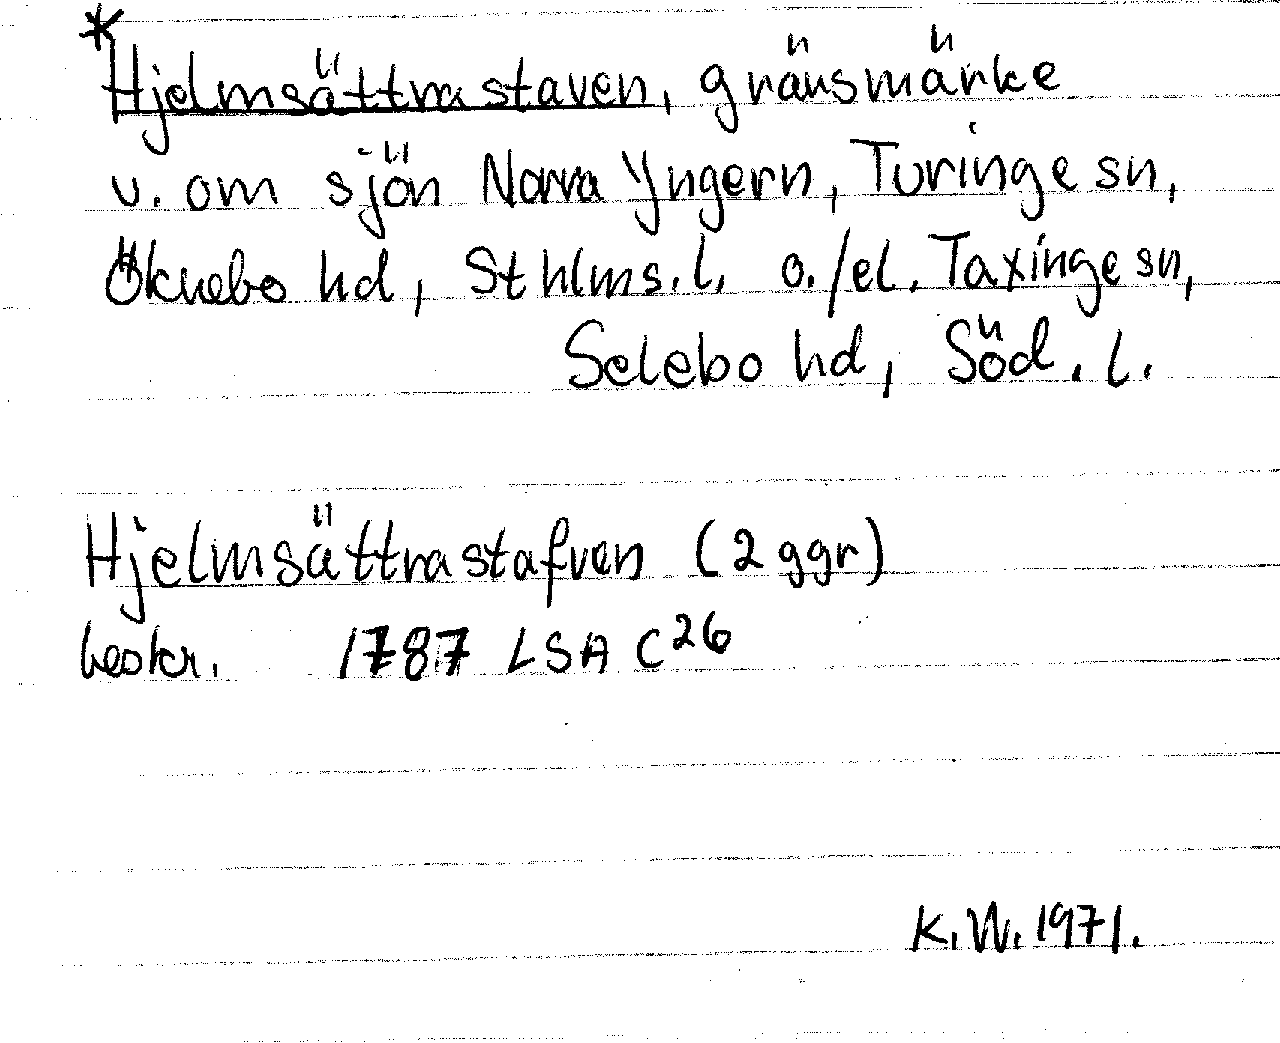 *
Hjelmsättrastaven, gränsmärke
v. om sjön Norra Yngern, Turinge sn,
Öknebo hd, Sthlms. l. o./el. Taxinge sn,
Selebo hd, Söd. l.
Hjelmsättrastafven (2 ggr)
beskr. 1787 LSA C26
K.W. 1971.